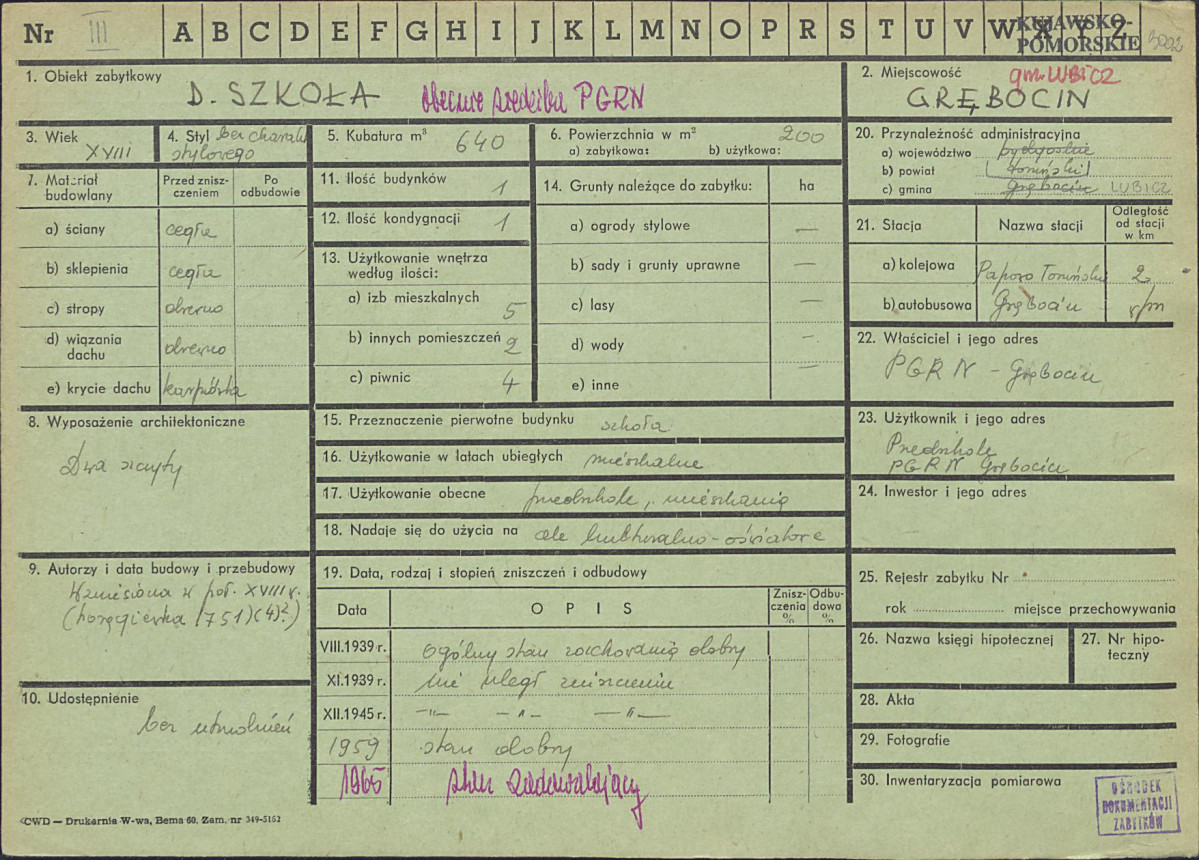 Nr III A B C D E F G H I J K L M N O P R S T U V W X Y Z
KUJAWSKO-
POMORSKIE
1. Obiekt zabytkowy
D. SZKOŁA obecnie siedziba PGRN
2. Miejscowość gm. LUBICZ
GRĘBOCIN
3. Wiek
XVIII
4. Styl bez charakt.
stylowego
5. Kubatura m³ 640
6. Powierzchnia w m² 200
a) zabytkowa: b) użytkowa:
7. Materiał
budowlany
Przed znisz-
czeniem
Po
odbudowie
a) ściany cegła
b) sklepienia cegła
c) stropy drewno
d) wiązania
dachu drewno
e) krycie dachu karpiówka
11. Ilość budynków 1
12. Ilość kondygnacji 1
13. Użytkowanie wnętrza
według ilości:
a) izb mieszkalnych 5
b) innych pomieszczeń 2
c) piwnic 4
14. Grunty należące do zabytku: ha
a) ogrody stylowe —
b) sady i grunty uprawne —
c) lasy —
d) wody —
e) inne —
20. Przynależność administracyjna
a) województwo bydgoskie
b) powiat toruński
c) gmina Grębocin LUBICZ
21. Stacja Nazwa stacji
Odległość
od stacji
w km
a) kolejowa Papowo Toruńskie 2
b) autobusowa Grębocin
22. Właściciel i jego adres
PGRN – Grębocin
8. Wyposażenie architektoniczne
Dwa szczyty
15. Przeznaczenie pierwotne budynku szkoła
16. Użytkowanie w latach ubiegłych mieszkalne
17. Użytkowanie obecne przedszkole, mieszkania
18. Nadaje się do użycia na cele kulturalno-oświatowe
23. Użytkownik i jego adres
Przedszkole
PGRN Grębocin
24. Inwestor i jego adres
9. Autorzy i data budowy i przebudowy
Wzniesiona w poł. XVIII w.
(chorągiewka 1751)(4)?)
19. Data, rodzaj i stopień zniszczeń i odbudowy
Data O P I S
Znisz-
czenia
%
Odbu-
dowa
%
VIII.1939 r. ogólny stan zachowania dobry
XI.1939 r. nie uległ zniszczeniu
XII.1945 r. –"– –"– –"–
1959 stan dobry
1965 stan zadowalający
10. Udostępnienie
bez utrudnień
25. Rejestr zabytku Nr
rok miejsce przechowywania
26. Nazwa księgi hipotecznej
27. Nr hipo-
teczny
28. Akta
29. Fotografie
30. Inwentaryzacja pomiarowa
OŚRODEK
DOKUMENTACJI
ZABYTKÓW
CWD — Drukarnia W-wa, Bema 60. Zam. nr 349-5162